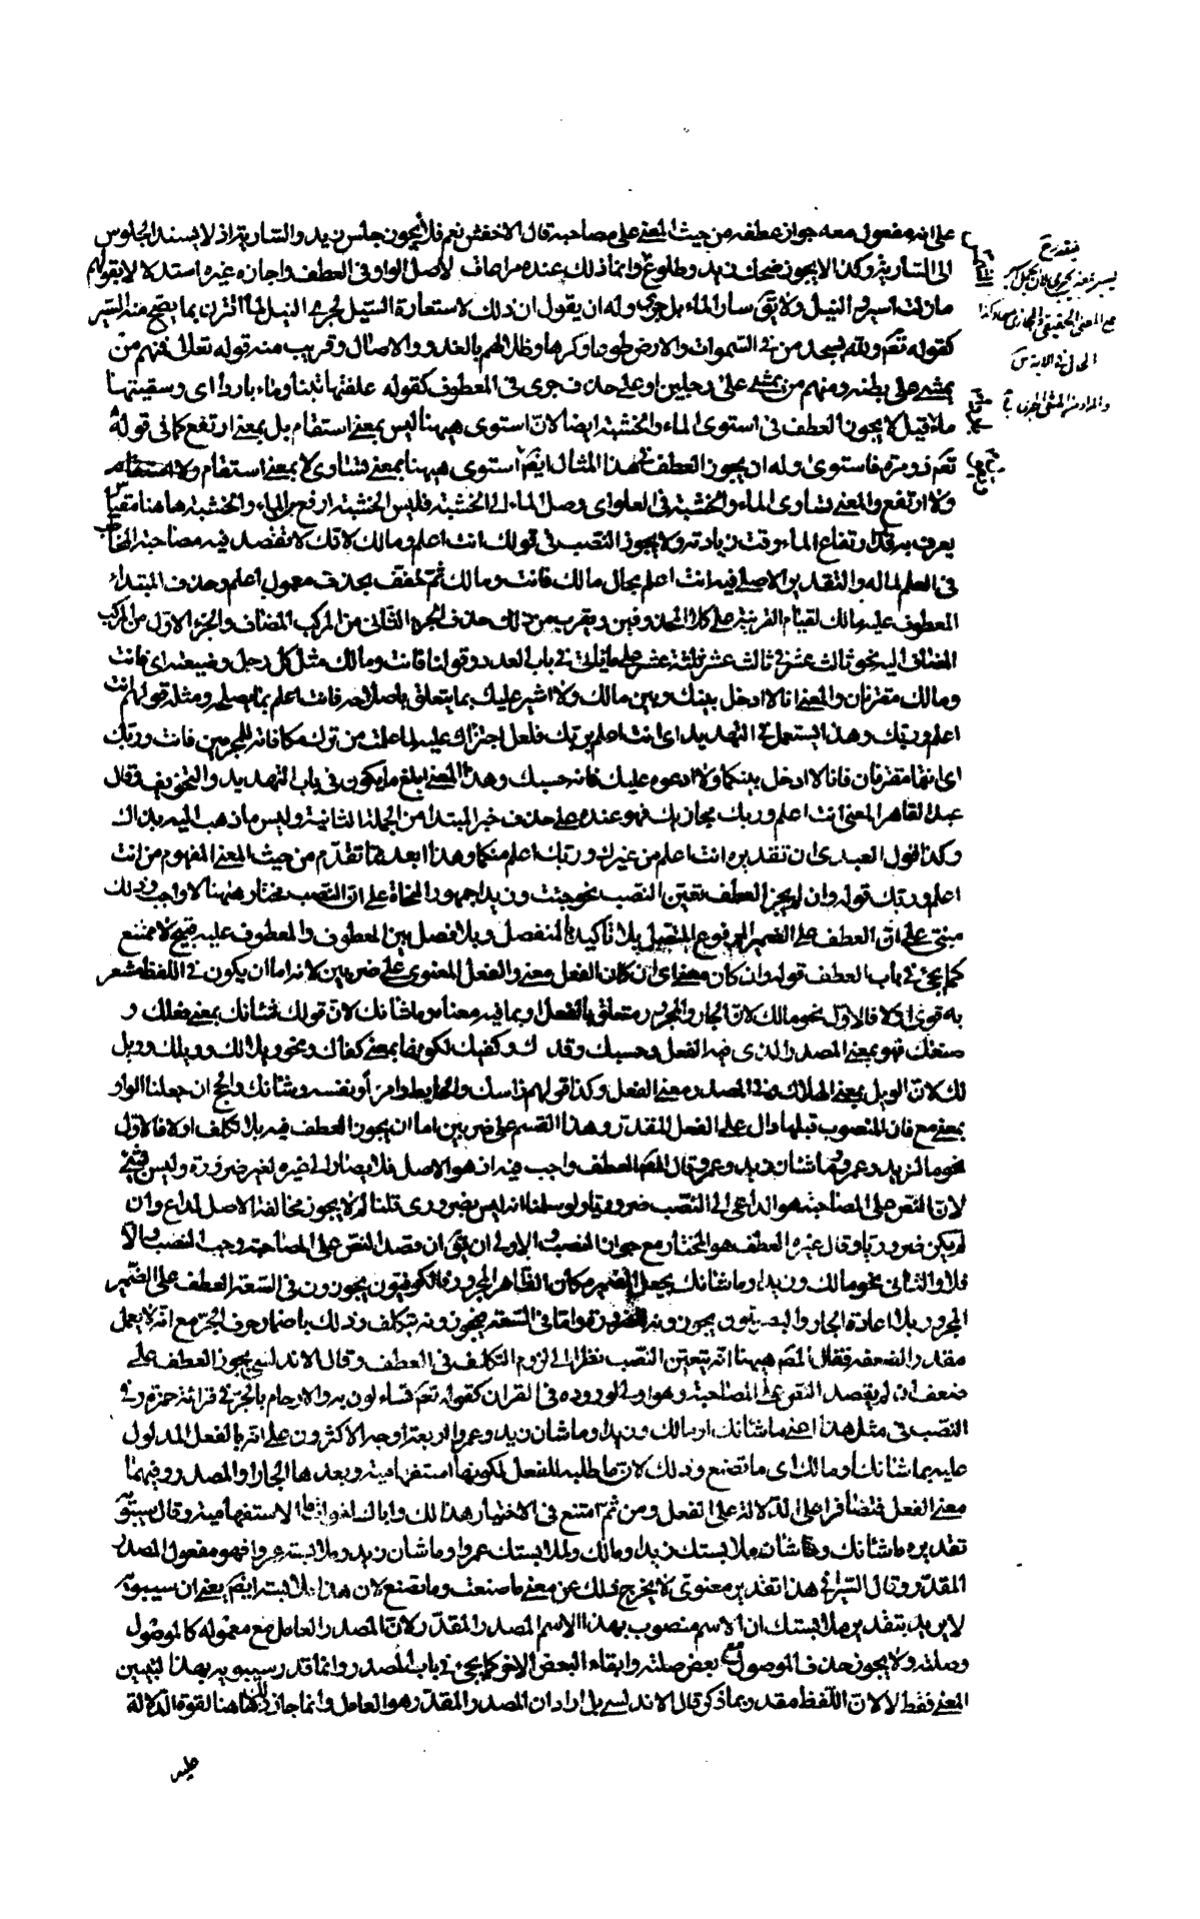 على انه مفعول معه جواز عطفه من حيث المعنى على مصاحبه قال الاخفش نعم فلا يجوز جلس زيد والسارية اذ لا يسند الجلوس
الى السارية وكذا لا يجوز ضحك زيد وطلوع وانما ذلك عنده مراعاة لاصل الواو في العطف واجازه غيره استدلالا بقولهم
مازلت اسير والنيل ولا يق سار الماء بل جرى وله ان يقول ان ذلك لاستعارة السيل لجرى النيل لما اقترن بما يصح منه السير
كقوله تعم ولله يسجد من في السموات والارض طوعا وكرها وظلالهم بالغدو والاصال وقريب منه قوله تعالى فمنهم من
يمشي على بطنه ومنهم من يمشي على رجلين او على حذف جرى في المعطوف كقوله علفتها تبنا وماء باردا اى وسقيتها
ماء قيل لا يجوز العطف في استوى الماء والخشبة ايضا لان استوى ههنا ليس بمعنى استقام بل بمعنى ارتفع كما في قوله
تعم ذو مرة فاستوى وله ان يجوز العطف في هذا المثال ايضم استوى ههنا بمعنى تساوى لا بمعنى استقام ولا استقام
ولا ارتفع والمعنى تساوى الماء والخشبة في العلو اى وصل الماء الى الخشبة فليس الخشبة ارفع من الماء والخشبة هاهنا مقياس
يعرف به قدر ارتفاع الماء وقت زيادته ولا يجوز النصب في قولك انت اعلم ومالك لانك لا تقصد فيه مصاحبة المخاطب
في العلم لماله والتقدير الاصلي فيه انت اعلم بحال مالك فانت ومالك ثم خفف بحذف معمول اعلم وحذف المبتداء
المعطوف عليه مالك لقيام القرينة على كلا المحذوفين ويقرب من ذلك حذف الجزء الثاني من المركب المضاف والجزء الاول من المركب
المضاف اليه نحو ثالث عشر في ثالث عشر ثلثة عشر على ما ياتى في باب العدد وقولنا فانت ومالك مثل كل رجل وضيعته اى فانت
ومالك مقترنان والمعنى انا لا ادخل بينك وبين مالك ولا اشير عليك بما يتعلق باصلاحه فانت اعلم بما يصلحه ومثله قولهم انت
اعلم وربك وهذا يستعمل في التهديد اى انت اعلم بربك فلعل اجتراك عليه لما علمت من تركه مكافاته للمجرمين فانت وربك
اى انتما مقترنان فانا لا ادخل بينكما ولا ادعوه عليك فانه حسبك وهذا المعنى ابلغ ما يكون في باب التهديد والتخويف وقال
عبد القاهر المعنى انت اعلم وربك مجازيك فهو عنده على حذف خبر المبتدا من الجملة الثانية وليس ما ذهب اليه بذاك
وكذا قول العبدى ان تقديره انت اعلم من غيرك وربك اعلم منكما وهذا ابعد مما تقدم من حيث المعنى المفهوم من انت
اعلم وربك قوله وان لم يجز العطف تعين النصب نحو جئت وزيدا جمهور النحاة على ان النصب مختار ههنا لا واجب وذلك
مبنى على ان العطف على الضمير المرفوع المتصل بلا تأكيد بالمنفصل وبلا فصل بين المعطوف والمعطوف عليه قبيح لا ممتنع
كما يجئ في باب العطف قوله وان كان معنى اى ان كان الفعل معنى والفعل المعنوى على ضربين لانه اما ان يكون في اللفظ مشعر
به قوى اولا فالاول نحو مالك لان الجار والمجرور متعلق بالفعل او بما فيه معناه وما شانك لان قولك شانك بمعنى فعلك و
صنعك فهو بمعنى المصدر الذى فيه الفعل وحسبك وقدك وكفيك لكونها بمعنى كفاك ونحو ويلا لك وويلك وويل
لك لان الويل بمعنى الهلاك ففى المصدر معنى الفعل وكذا قولهم راسك والحايط وامرأ ونفسه وشانك والحج ان جعلنا الواو
بمعنى مع فان المنصوب قبلها دال على الفعل المقدر وهذا القسم على ضربين اما ان يجوز العطف فيه بلا تكلف اولا فالاول
نحو ما لزيد وعمرو وما شان زيد وعمرو قال المصم العطف واجب فيه اذ هو الاصل فلا يصار الى غيره لغير ضرورة وليس بشئ
لان النص على المصاحبة هو الداعى الى النصب ضروريا ولو سلمنا انه ليس بضرورى قلنا لم لا يجوز مخالفة الاصل لداع وان
لم يكن ضروريا وقال غيره العطف هو المختار مع جواز النصب والاولى ان يق ان قصد النص على المصاحبة وجب النصب والا
فلا والثانى نحو مالك وزيدا وما شانك بجعل الضمير مكان الظاهر المجرور فالكوفيون يجوزون في السعة العطف على الضمير
المجرور بلا اعادة الجار والبصريون يجوزونه للضرورة واما في السعة فيجوزونه بتكلف وذلك باضمار حرف الجر مع انه لا يعمل
مقدرا لضعفه فقال المصم ههنا انه يتعين النصب نظرا الى لزوم التكلف في العطف وقال الاندلسي يجوز العطف على
ضعف ان لم يقصد النص على المصاحبة وهو اولى لوروده في القران كقوله تعم تساءلون به والارحام بالجر في قراءة حمزة وفي
النصب في مثل هذا اعنى ما شانك او مالك وزيدا وما شان زيد وعمرا اربعة اوجه الاكثرون على انه بالفعل المدلول
عليه بما شانك او مالك اى ما تصنع وذلك لان ما طلبه للفعل لكونها استفهامية وبعدها الجار او المصدر وفيهما
معنى الفعل فتضافرا على الدلالة على الفعل ومن ثم امتنع في الاختيار هذا لك واباك لفوات ما الاستفهامية وقال سيبويه
تقديره ما شانك وشان ملابستك زيدا ومالك وملابستك عمروا وما شان زيد وملابسته عمروا فهو مفعول المصدر
المقدر وقال السيرافي هذا تقدير معنوى لا يخرج ذلك عن معنى ما صنعت وما تصنع لان هذا ملابسة ايضم يعنى ان سيبويه
لا يريد بتقدير ملابستك ان الاسم منصوب بهذا الاسم المصدر المقدر لان المصدر العامل مع معموله كالموصول
وصلته ولا يجوز حذف الموصول مع بعض صلته وابقاء البعض الاخر كما يجئ في باب المصدر وانما قدر سيبويه بهذا لتبيين
المعنى فقط لا لان اللفظ مقدر بما ذكر قال الاندلسي بل اراد ان المصدر المقدر هو العامل وانما جاز ذلك هاهنا لقوة الدلالة
عليه